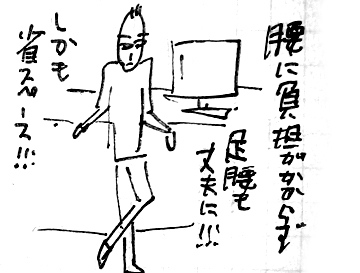 腰に負担がかからず
足腰も
丈夫に!!!
しかも
省スペース!!!